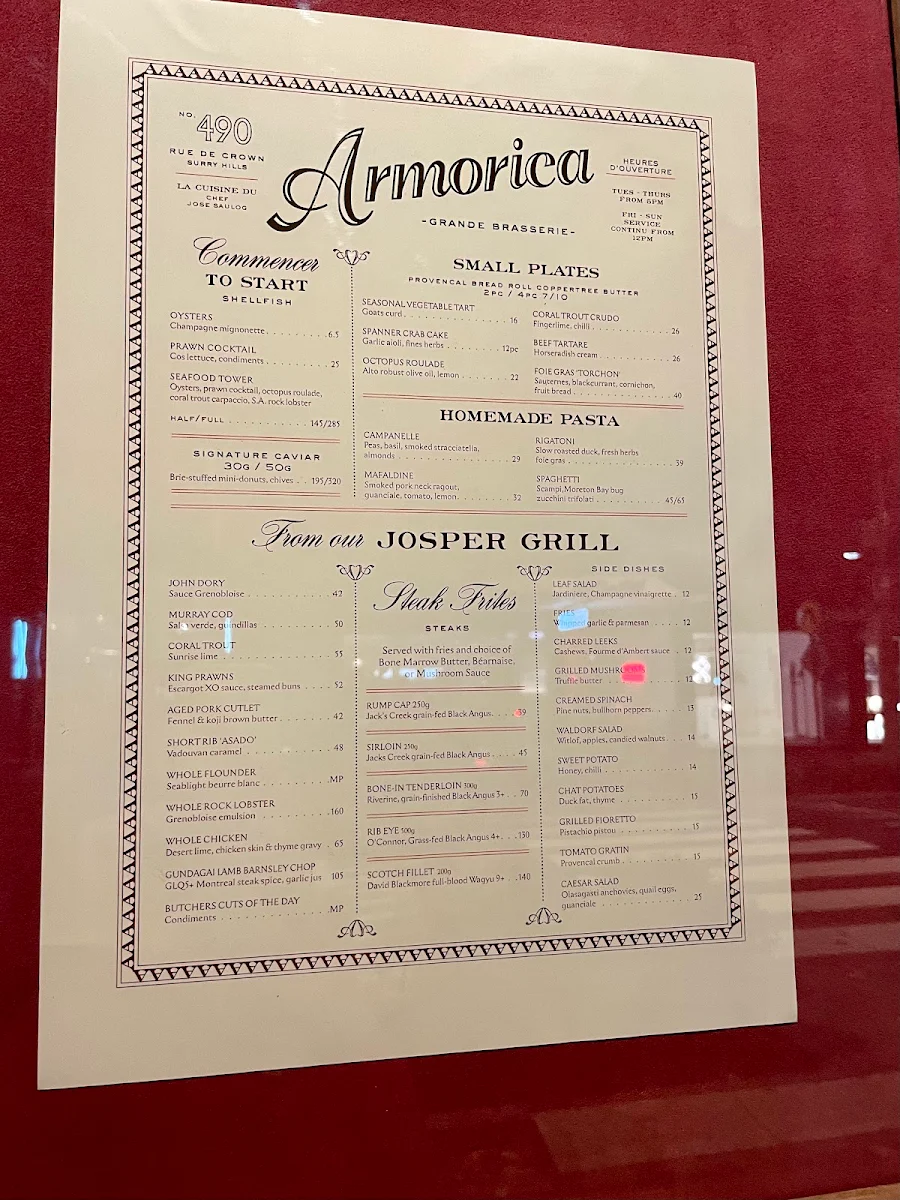 NO. 490
RUE DE CROWN
SURRY HILLS
LA CUISINE DU
CHEF
JOSE SAULOG
Armorica
-GRANDE BRASSERIE-
HEURES
D'OUVERTURE
TUES - THURS
FROM 5PM
FRI - SUN
SERVICE
CONTINU FROM
12PM
Commencer
TO START
SHELLFISH
OYSTERS
Champagne mignonette . . . . . . . . . . 6.5
PRAWN COCKTAIL
Cos lettuce, condiments . . . . . . . . . 25
SEAFOOD TOWER
Oysters, prawn cocktail, octopus roulade,
coral trout carpaccio, S.A. rock lobster
HALF/FULL . . . . . . . . . . . . 145/285
SIGNATURE CAVIAR
30G / 50G
Brie-stuffed mini-donuts, chives . . 195/320
SMALL PLATES
PROVENCAL BREAD ROLL COPPERTREE BUTTER
2PC / 4PC 7/10
SEASONAL VEGETABLE TART
Goats curd . . . . . . . . . . . . . . 16
SPANNER CRAB CAKE
Garlic aioli, fines herbs . . . . . . . . 12pc
OCTOPUS ROULADE
Alto robust olive oil, lemon . . . . . . . 22
CORAL TROUT CRUDO
Fingerlime, chilli . . . . . . . . . . . 26
BEEF TARTARE
Horseradish cream . . . . . . . . . . . 26
FOIE GRAS 'TORCHON'
Sauternes, blackcurrant, cornichon,
fruit bread . . . . . . . . . . . . . . 40
HOMEMADE PASTA
CAMPANELLE
Peas, basil, smoked stracciatella,
almonds . . . . . . . . . . . . . . . 29
MAFALDINE
Smoked pork neck ragout,
guanciale, tomato, lemon . . . . . . . . 32
RIGATONI
Slow roasted duck, fresh herbs
foie gras . . . . . . . . . . . . . . . 39
SPAGHETTI
Scampi, Moreton Bay bug
zucchini trifolati . . . . . . . . . . 45/65
From our JOSPER GRILL
JOHN DORY
Sauce Grenobloise . . . . . . . . . . . 42
MURRAY COD
Salsa verde, guindillas . . . . . . . . . 50
CORAL TROUT
Sunrise lime . . . . . . . . . . . . . . 55
KING PRAWNS
Escargot XO sauce, steamed buns . . . . . 52
AGED PORK CUTLET
Fennel & koji brown butter . . . . . . . 42
SHORT RIB 'ASADO'
Vadouvan caramel . . . . . . . . . . . 48
WHOLE FLOUNDER
Seablight beurre blanc . . . . . . . . . MP
WHOLE ROCK LOBSTER
Grenobloise emulsion . . . . . . . . . 160
WHOLE CHICKEN
Desert lime, chicken skin & thyme gravy . 65
GUNDAGAI LAMB BARNSLEY CHOP
GLQ5+ Montreal steak spice, garlic jus 105
BUTCHERS CUTS OF THE DAY
Condiments . . . . . . . . . . . . . . MP
Steak Frites
STEAKS
Served with fries and choice of
Bone Marrow Butter, Béarnaise,
or Mushroom Sauce
RUMP CAP 250g
Jack's Creek grain-fed Black Angus. . . . 39
SIRLOIN 250g
Jacks Creek grain-fed Black Angus . . . . 45
BONE-IN TENDERLOIN 300g
Riverine, grain-finished Black Angus 3+ . . 70
RIB EYE 500g
O'Connor, Grass-fed Black Angus 4+ . . . 130
SCOTCH FILLET 200g
David Blackmore full-blood Wagyu 9+ . . 140
SIDE DISHES
LEAF SALAD
Jardiniere, Champagne vinaigrette . 12
FRIES
Whipped garlic & parmesan . . . . . 12
CHARRED LEEKS
Cashews, Fourme d'Ambert sauce . 12
GRILLED MUSHROOMS
Truffle butter . . . . . . . . . . . 12
CREAMED SPINACH
Pine nuts, bullhorn peppers. . . . . 13
WALDORF SALAD
Witlof, apples, candied walnuts . . . 14
SWEET POTATO
Honey, chilli . . . . . . . . . . . . 14
CHAT POTATOES
Duck fat, thyme . . . . . . . . . . 15
GRILLED FIORETTO
Pistachio pistou . . . . . . . . . . 15
TOMATO GRATIN
Provencal crumb . . . . . . . . . . 15
CAESAR SALAD
Olasagasti anchovies, quail eggs,
guanciale . . . . . . . . . . . . . 25